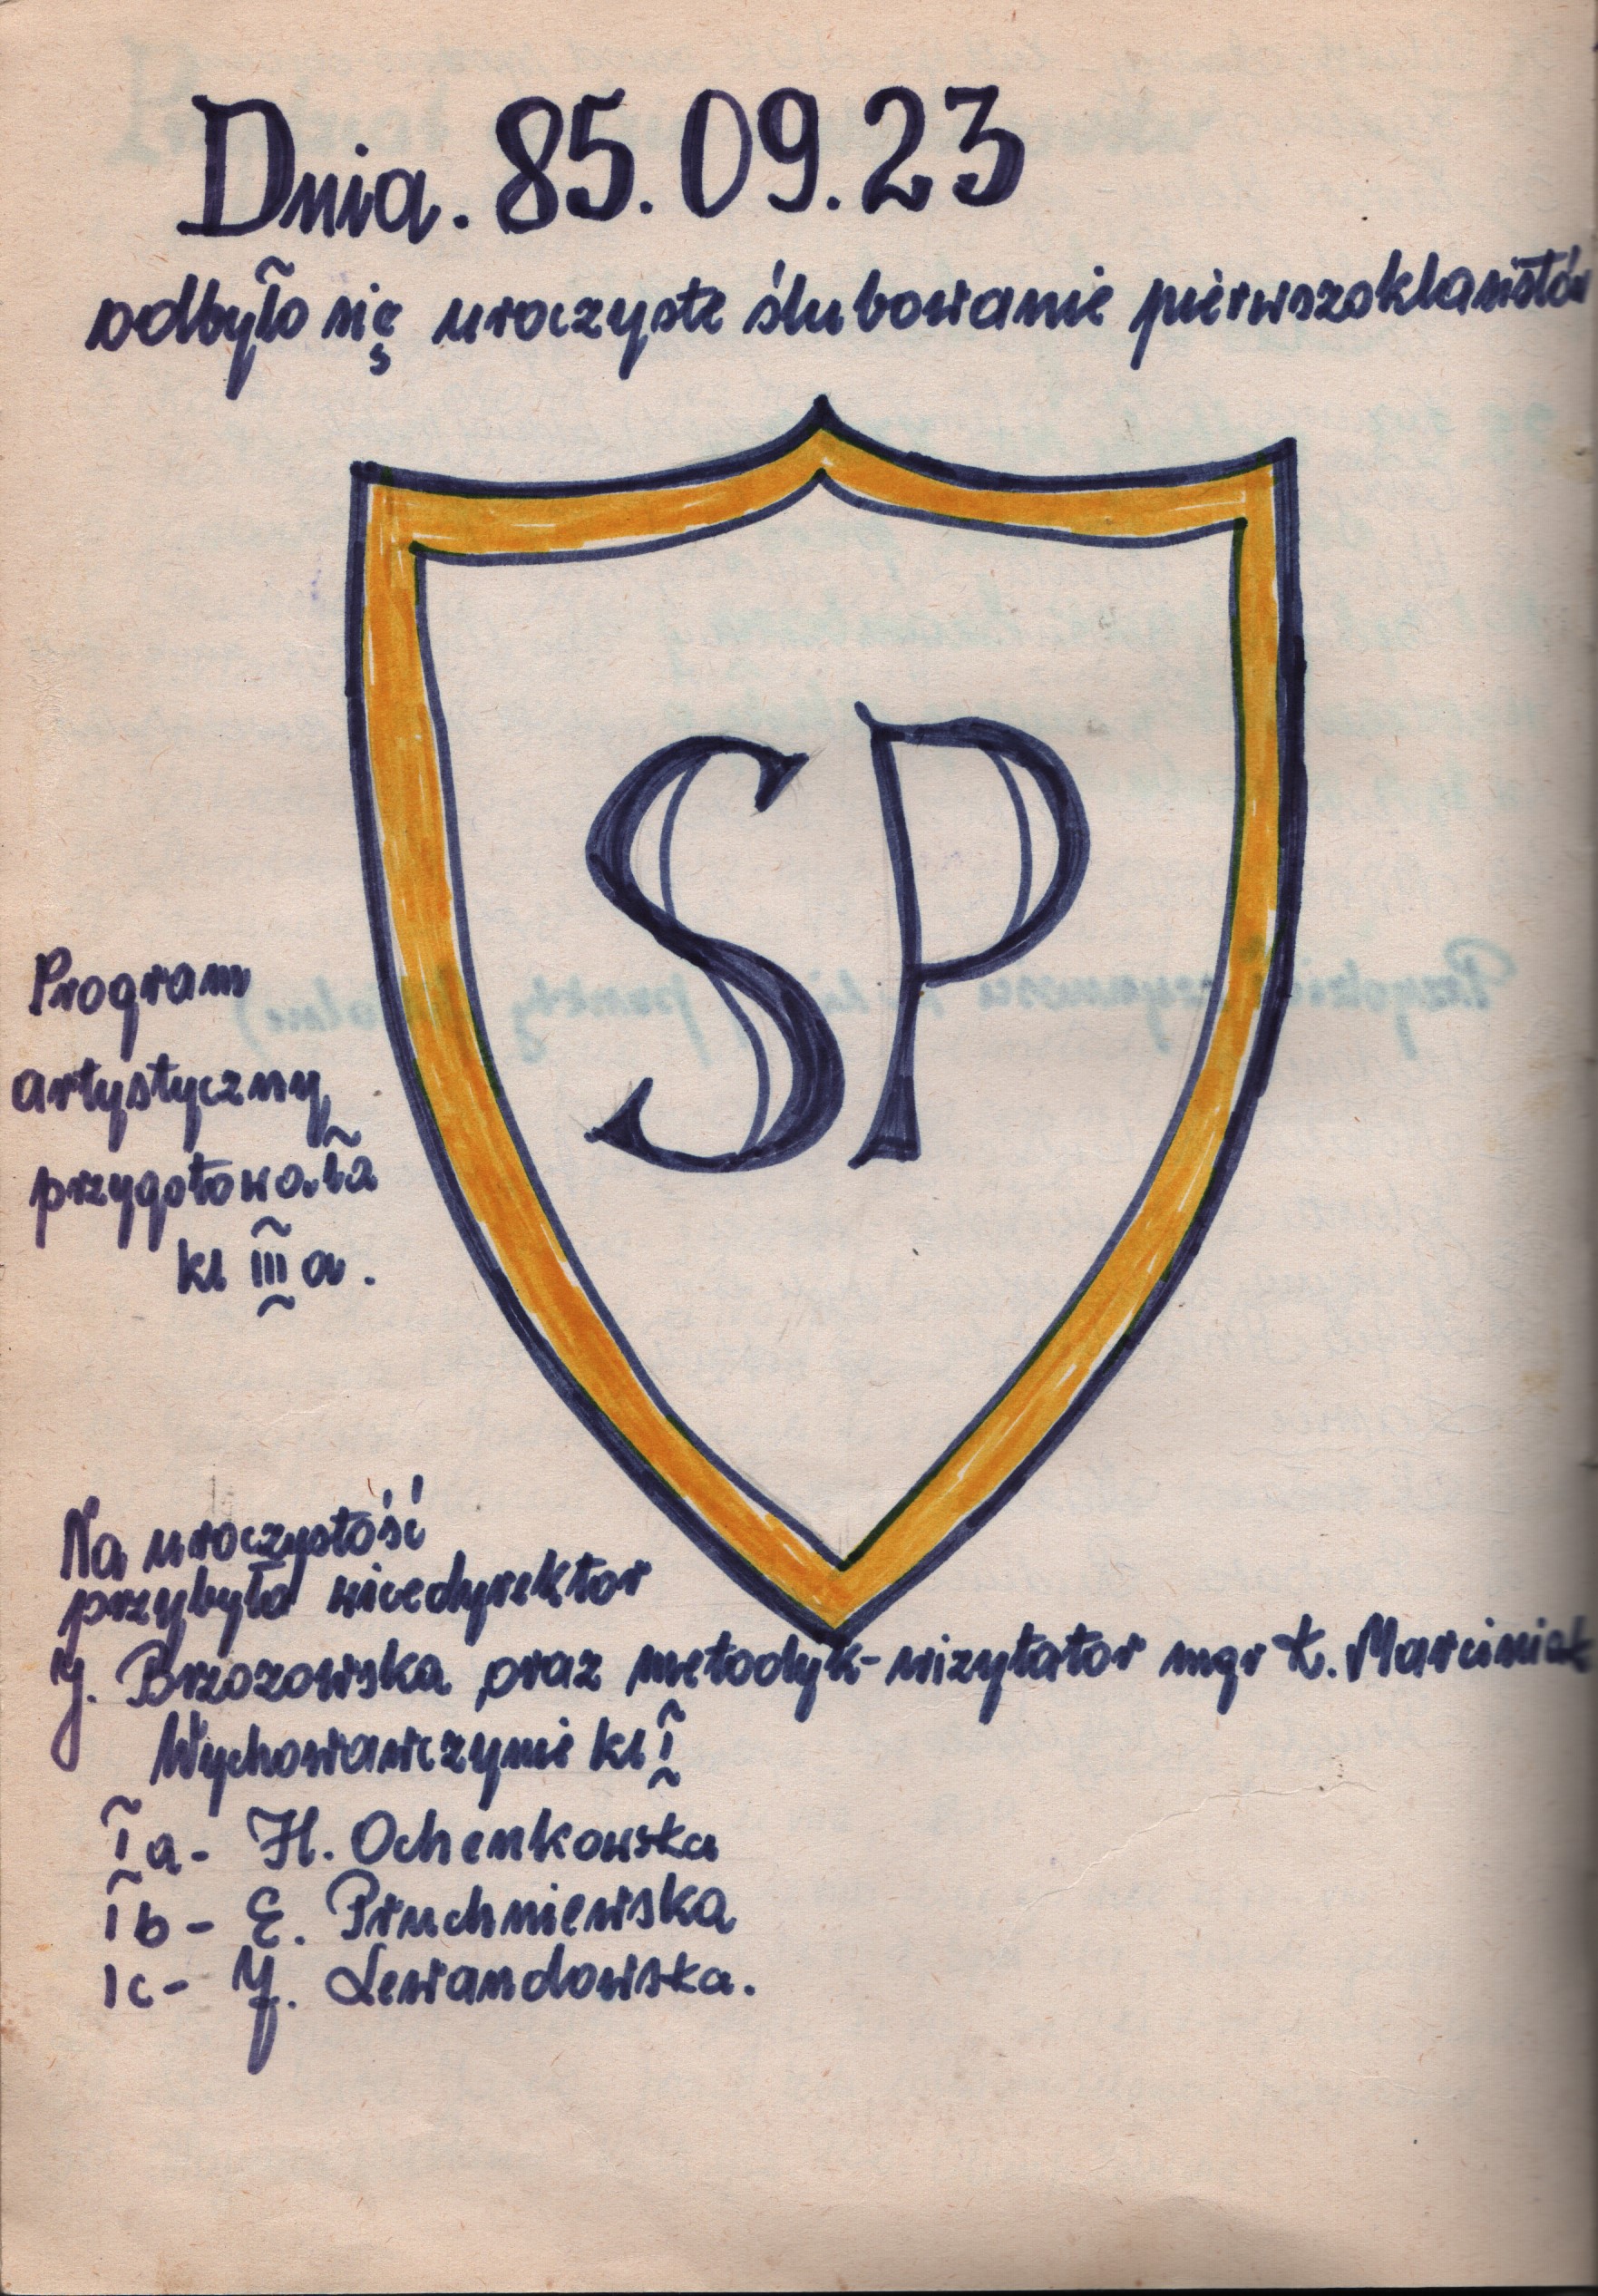 Dnia. 85.09.23
odbyło się uroczyste ślubowanie pierwszoklasistów
SP
Program
artystyczny
przygotowała
kl III a.
Na uroczystość
przybyła wicedyrektor
J. Brzozowska oraz metodyk-wizytator mgr Ł. Marciniak
Wychowawczynie kl I
I a - H. Ochenkowska
I b - E. Pruchniewska
I c - J. Lewandowska.